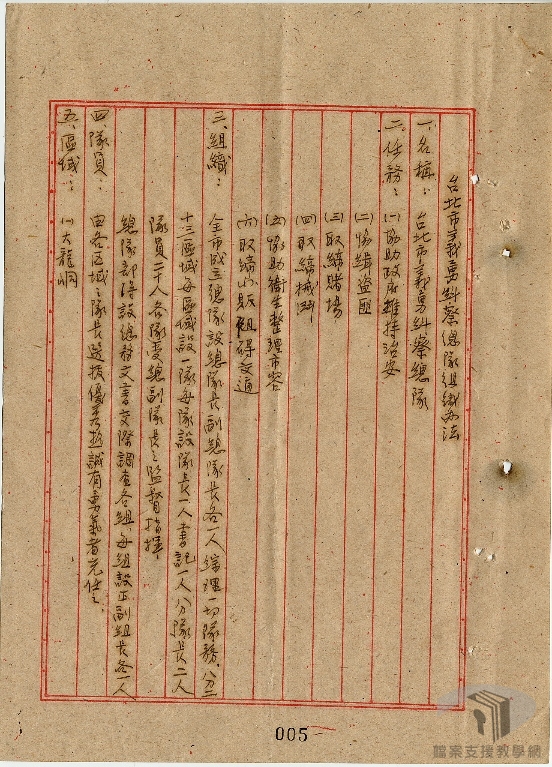 台北市義勇糾察總隊組織办法
一、名稱：台北市義勇糾察總隊
二、任務：㈠協助政府維持治安
㈡協緝盜匪
㈢取締賭場
㈣取締械鬥
㈤協助衛生整理市容
㈥取締小販阻碍交通
三、組織：全市成立總隊設總隊長副總隊長各一人綜理一切隊務，分二
十三區域每區域設一隊每隊設隊長一人書記一人分隊長二人
隊員二十人各隊受總副隊長之監督指揮
總隊部得設總務文書交際調查各組，每組設正副組長各一人
四、隊員：由各區域之隊長選拔優秀熱誠有勇義者充任之。
五、區域：㈠大龍峒
005
檔案支援教學網